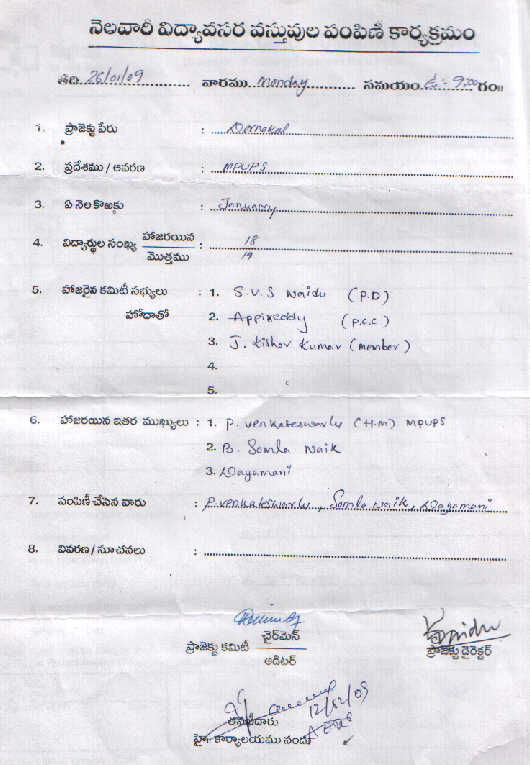 నెలవారీ విద్యావసర వస్తువుల పంపిణీ కార్యక్రమం
తేది 26/01/09 వారము Monday సమయం ఉ:- 9=00 గం॥
1. ప్రాజెక్టు పేరు : Dornakal
2. ప్రదేశము / ఆవరణ : MPUPS
3. ఏ నెల కొఱకు : January
4. విద్యార్థుల సంఖ్య హాజరయిన : 18
మొత్తము 19
5. హాజరైన కమిటీ సభ్యులు : 1. S.V.S Naidu (P.D)
హోదాతో 2. Appireddy (P.C.C)
3. J. Kishor Kumar (member)
4.
5.
6. హాజరయిన ఇతర ముఖ్యులు : 1. P. Venkateswarlu (H.M) MPUPS
2. B. Somla Naik
3. Dayamani
7. పంపిణీ చేసిన వారు : P. Venkateswarlu, Somla Naik, Dayamani
8. వివరణ / సూచనలు :
ప్రాజెక్టు కమిటీ ఛైర్‌మెన్
ఆడిటర్
ప్రాజెక్టు డైరెక్టర్
12/02/09
తనిఖీదారు
హై. కార్యాలయము నందు